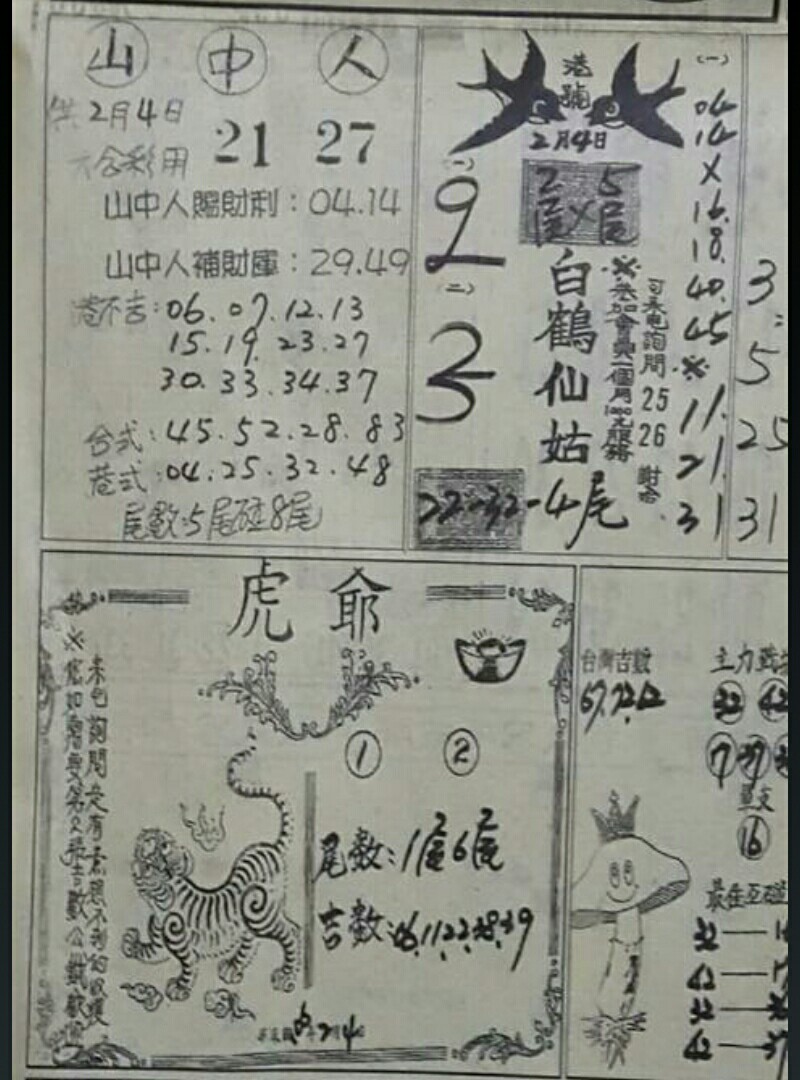 山中人
供2月4日
六合彩用
21 27
山中人賜財利：04.14
山中人補財庫：29.49
港不吉：06.07.12.13
15.19.23.27
30.33.34.37
合式：45.52.28.83
巷式：04.25.32.48
尾數：5尾碰8尾
港號
2月4日
(一)
2尾×5尾
9
(二)
3
白鶴仙姑
※參加會員與一個月1000元服務
可來电詢問 25 26 謝谷
22-32-4尾
(一)
04
14
×
16.
18.
40.
45
※
11.
21.
31
3
5
25
31
虎爺
① ②
尾數：1尾6尾
吉數：06.11.22.38.39
來电詢問是有意想不到的收獲
※您如需要第2張吉數公
2月4日
台灣吉數
67.72.12
主力
32 42
7 37
單支
16
最佳互碰
32—
42—
32—
42—